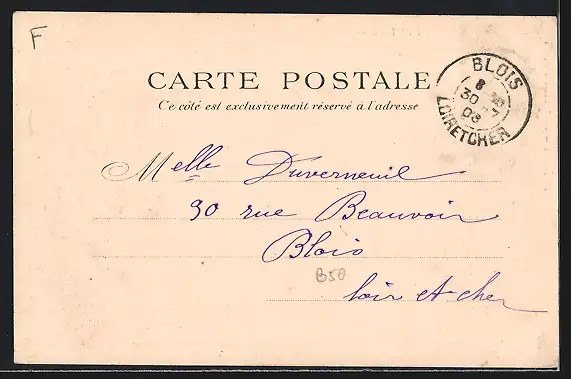 F
CARTE POSTALE
Ce côté est exclusivement réservé à l'adresse
BLOIS
8 E
30 -7
03
LOIR ET CHER
Melle Duverneuil
30 rue Beauvoir
Blois
B50
loir et cher